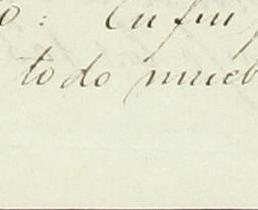 o: En fin
todo mueb